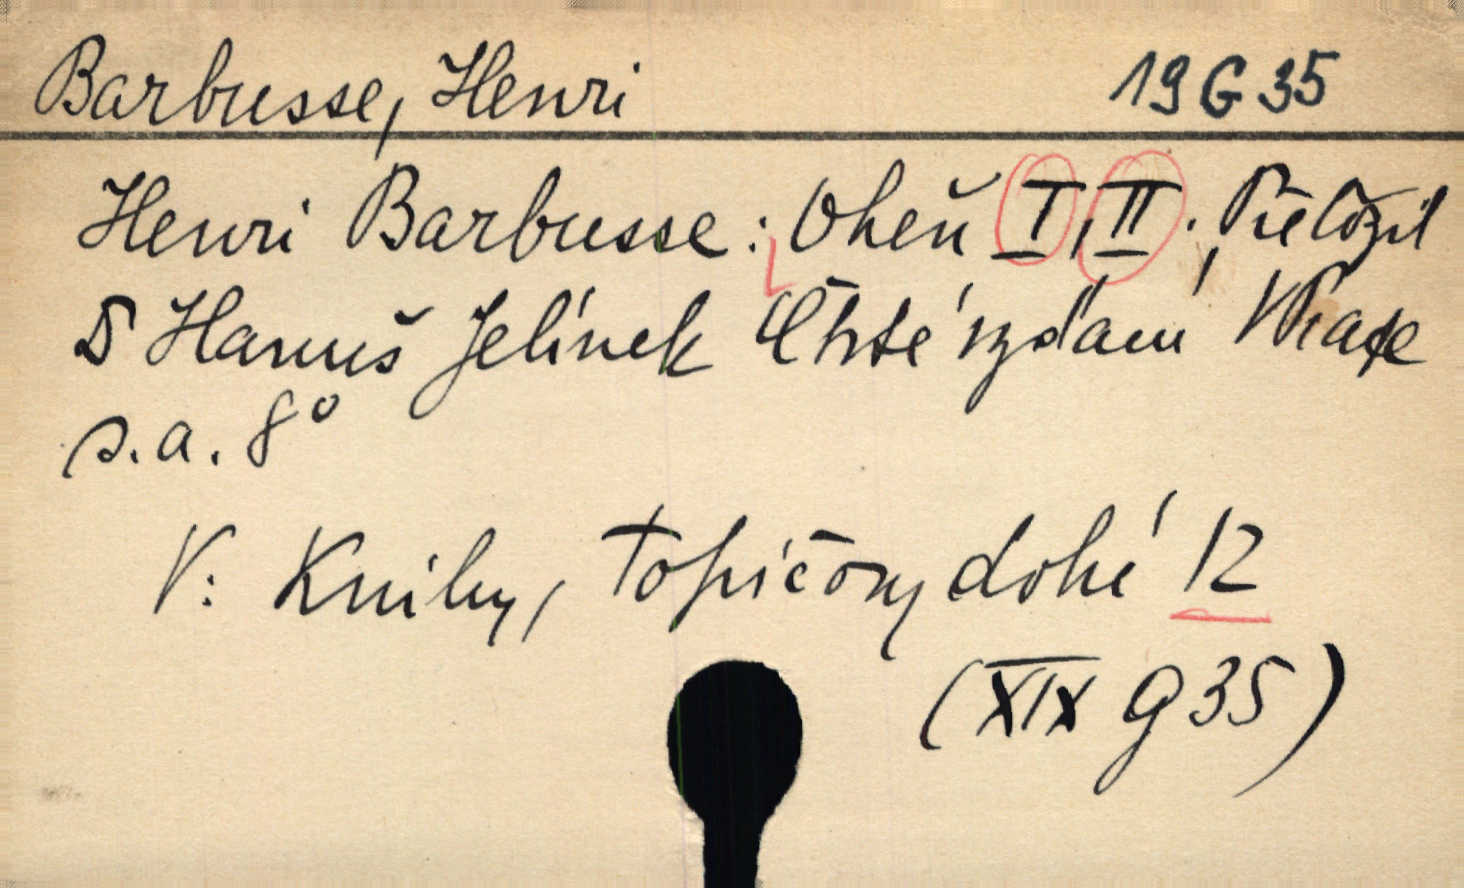 Barbusse, Henri 19 G 35
Henri Barbusse: Oheň I, II. Přeložil
Dr Hanuš Jelínek Čtvrté vydání V Praze
s.a. 8°
V: Knihy, Topičovy dobé 12
(XIX G 35)